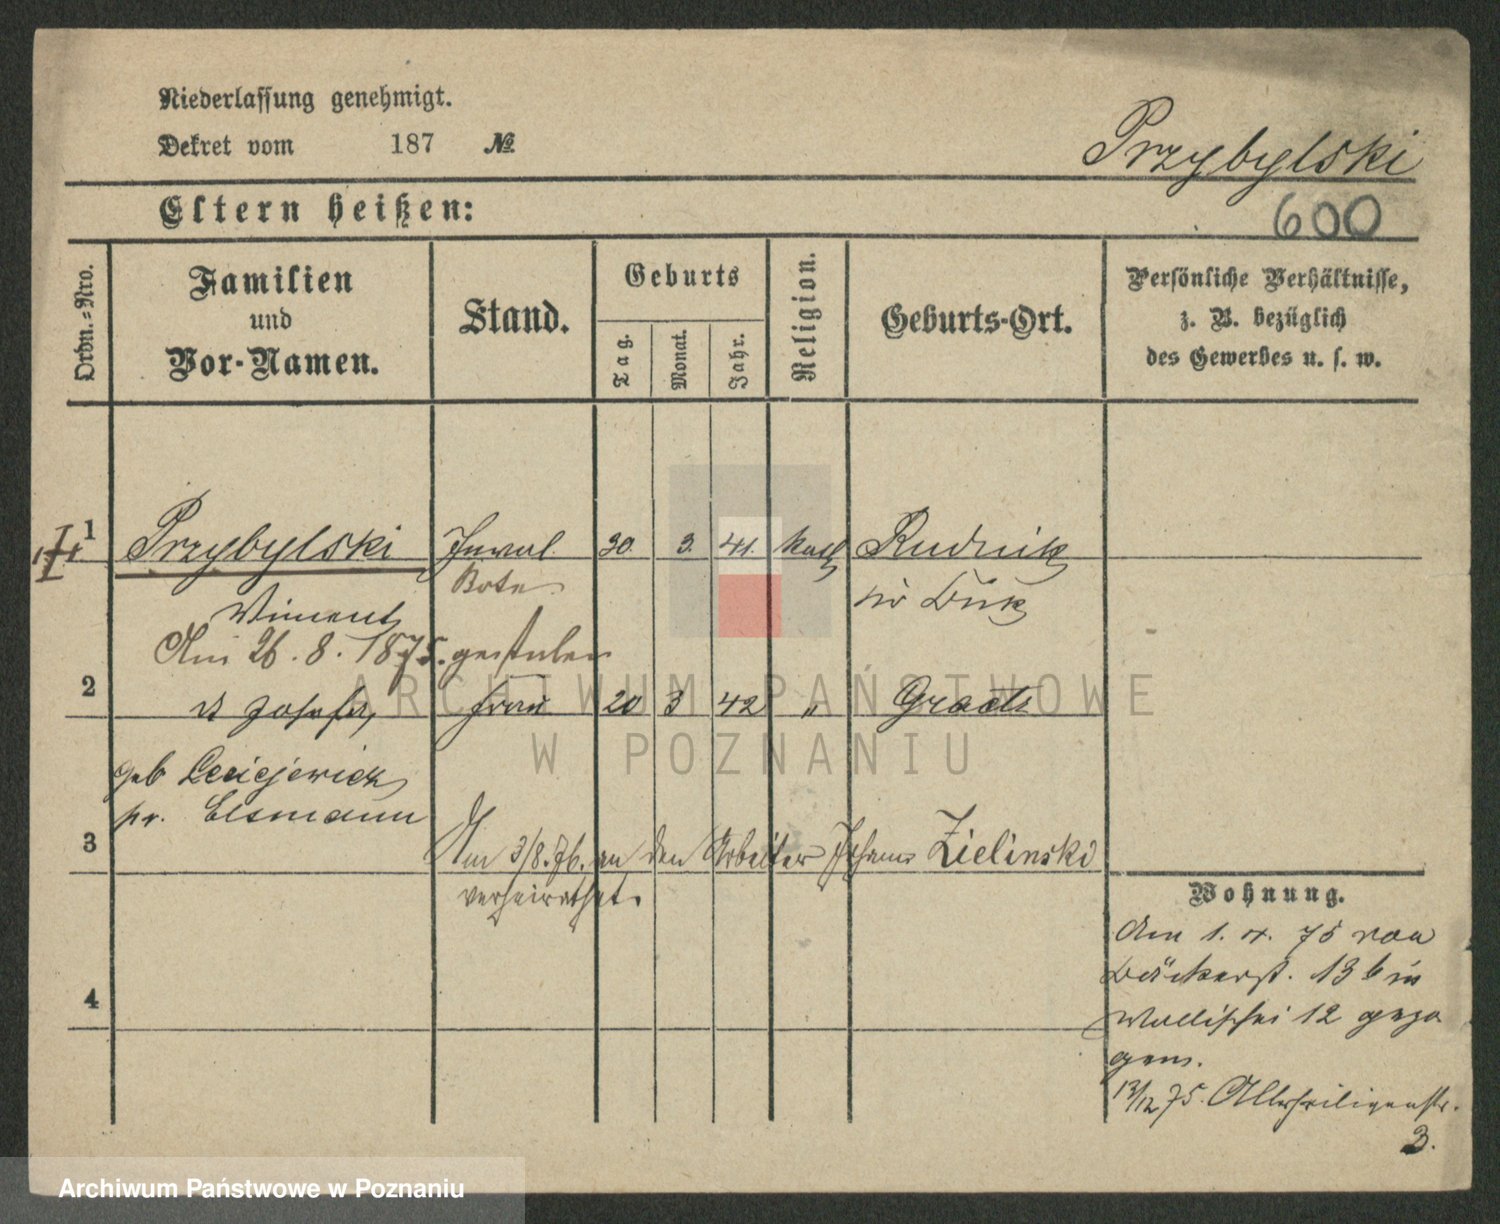 Niederlassung genehmigt.
Dekret vom 187 №
Przybylski
Eltern heißen:
600
Ordn.-Nro.
Familien und Vor-Namen.
Stand.
Geburts
Tag.
Monat.
Jahr.
Religion.
Geburts-Ort.
Persönliche Verhältnisse,
z. B. bezüglich
des Gewerbes u. s. w.
1 Przybylski Inval. 30. 3. 41. kath Rudnik
Bote
Vincent
Am 26. 8. 1875. gestorben
2 Josefa, Frau 20 3 42 " Graetz
geb
pr. Elsmann
3 Am 3/8. 76. an den Arbeiter Johann Zielinski
verheirathet.
Wohnung.
Am 1. 4. 75 von
Bäckerst. 13 b in
Wallischei 12 gezo
gen.
4
13/12 75. Allerheiligenstr.
3.
ARCHIWUM PAŃSTWOWE
W POZNANIU
Archiwum Państwowe w Poznaniu